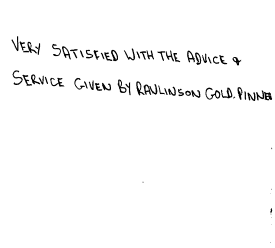 VERY SATISFIED WITH THE ADVICE &
SERVICE GIVEN BY RAWLINSON GOLD. PINNER